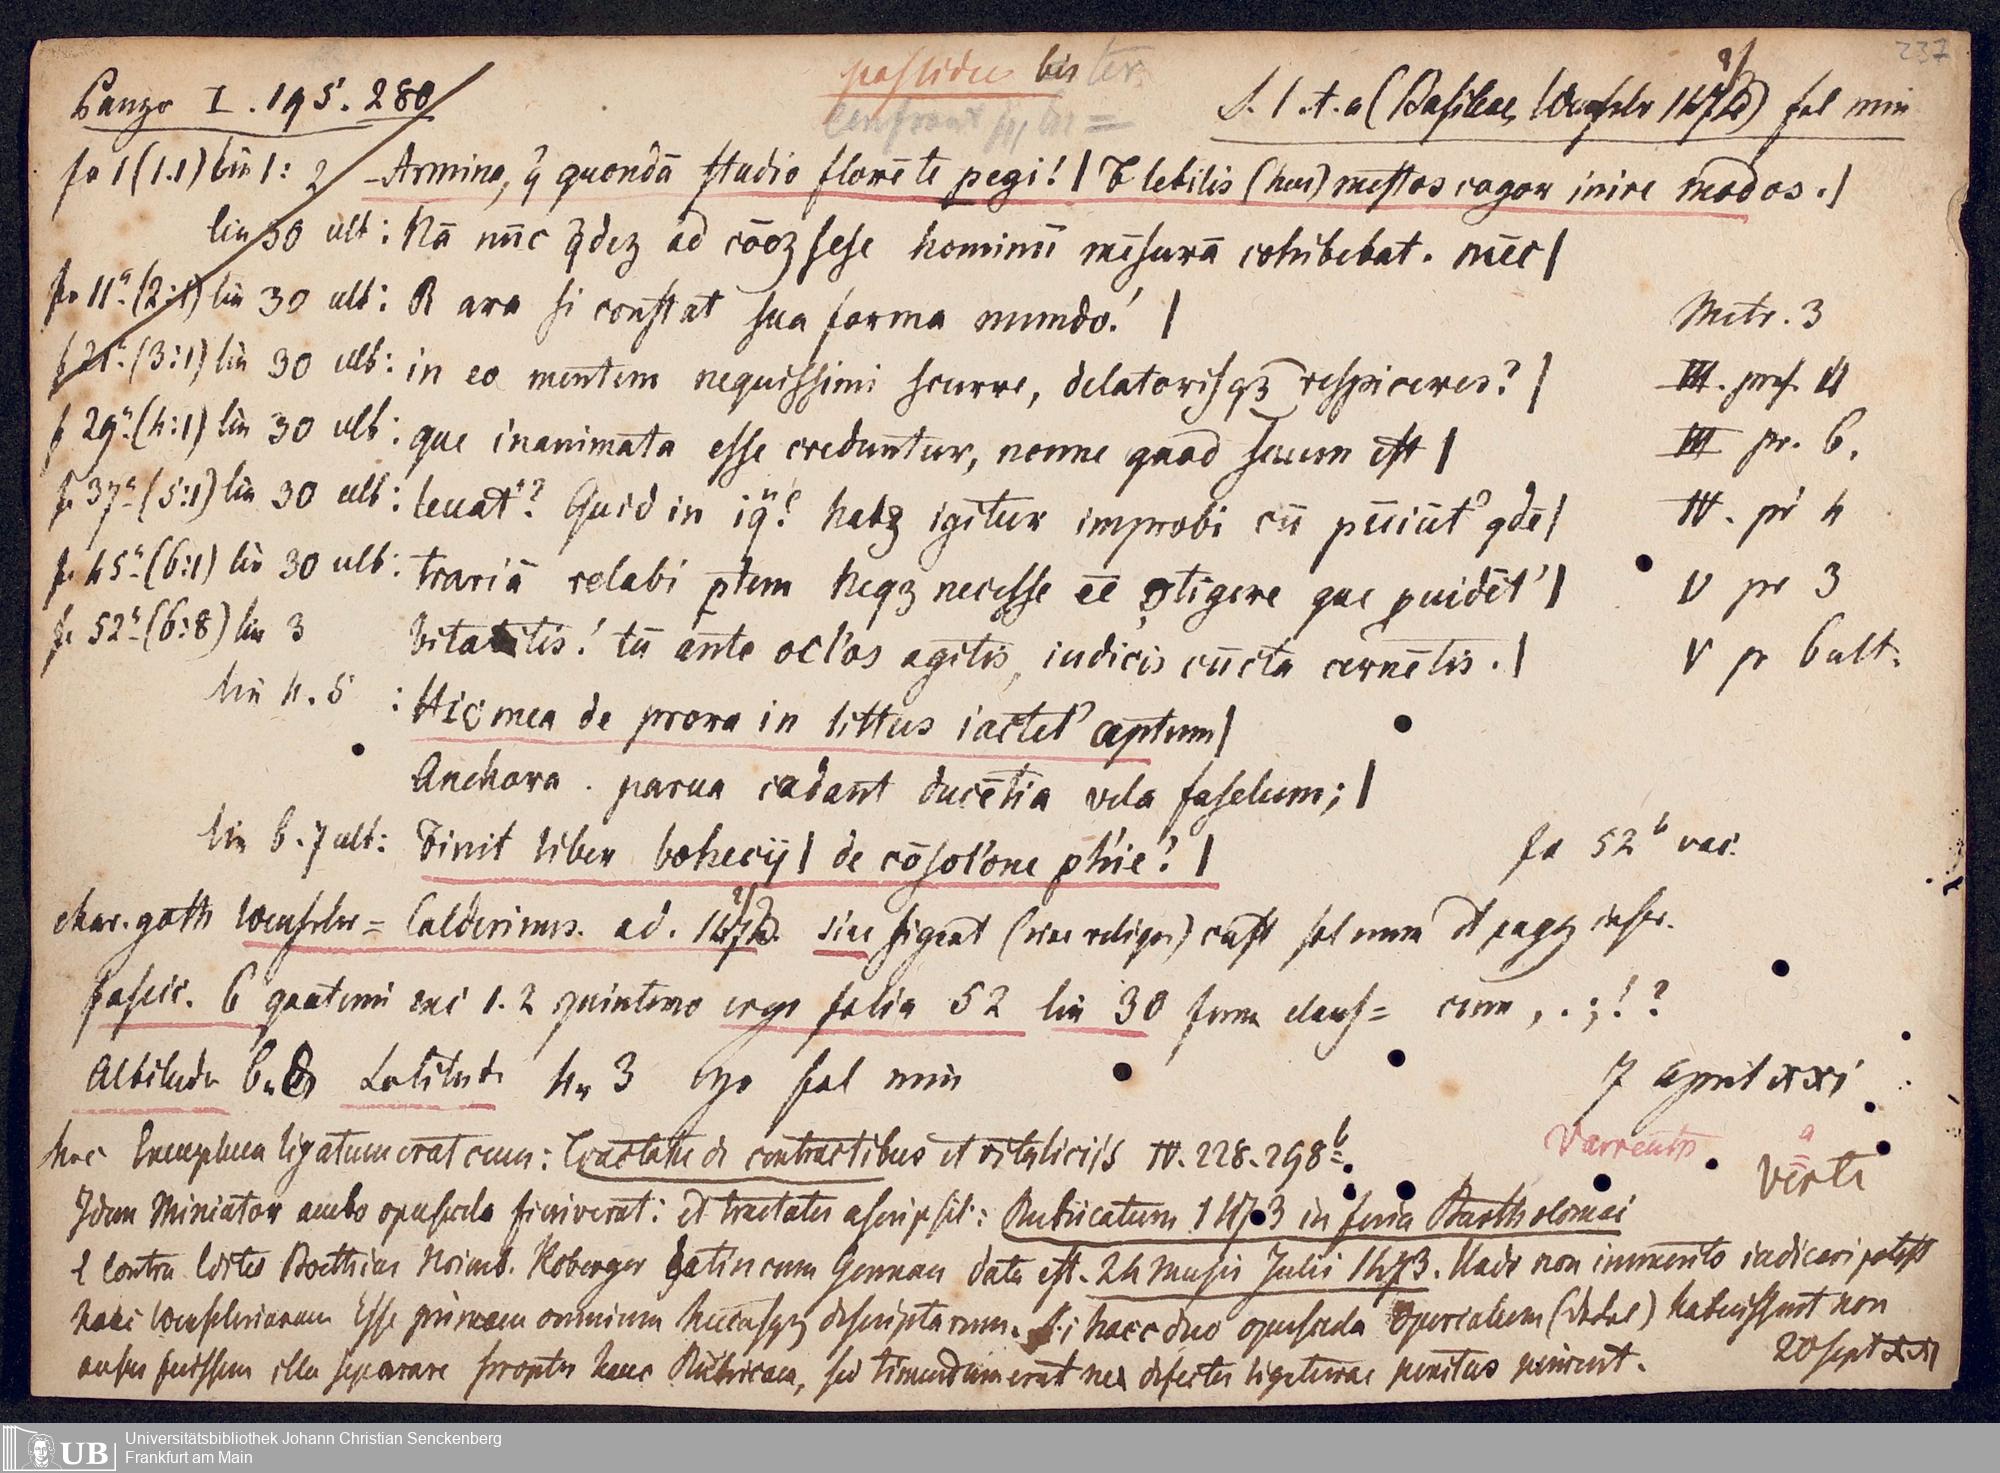 237
possideo bis ter
Panzer I. 195. 280
S. l. t. a (Basileae, Wensler 1472) fol min
fo 1 (1.1) lin 1: 2 Armina, q̄ quondā studio florēte pegi! | Flebilis (heu) mestos cogor inire modos. |
lin 30 ult: Nā nūc q̄dez ad cōōz sese hominū mēsurā cohibebat. nūc |
fo 11ᵃ (2:1) lin 30 ult: R ara si constat sua forma mundo! |
Metr. 3
f 21ᵃ (3:1) lin 30 ult: in eo mentem nequissimi scurre, delatorisqz respiceres? |
III. pros. 4
f 29ᵃ (4:1) lin 30 ult: que inanimata esse creduntur, nonne quod suum est |
III pr. 6.
fo 37ᵃ (5:1) lin 30 ult: leuat'? Quid in iq̄t! habz igitur improbi cū pūiūt' qde |
IV. pr 4
fo 45ᵃ (6:1) lin 30 ult: trariā relabi ptem neqz necesse ēē ꝯtigere que puidēt' |
V pr 3
fo 52ᵃ (6:8) lin 3 bitatis! tū ante oc'los agitis, iudicis cūcta cernētis. |
V pr 6 ult.
lin 4. 5 : Hic mea de prora in littus iactet' captum |
Anchora. parua cadant ducētia vela faselum; |
lin 6. 7 ult: Finit liber bohecij | de cōsol'one ph'ie? |
fo 52ᵇ vac.
char. goth Wensler = Calderinus. ad. 1472. sine signat (sine reliqu) cust fol num et pagg inscr.
fascic. 6 quaterni exc 1. 2 quinterno ergo folia 52 lin 30 forma claus = cum , . ; ! ?
Altitudo 6, 8 Latitudo 4, 3 ergo fol min
7 April xxi
hoc Exemplum ligatum erat cum: Tractatu de contractibus et vitaliciis IV. 228. 298ᵇ.
Varrentr.
verte
Idem Miniator ambo opuscula finiverat: et tractatui ascripsit: Rubricatum 1473 in feria Bartholomei
E contra Editio Boethius Norimb. Koberger Latin cum German data est. 24 mensis Julii 1473. Unde non immerito iudicari potest
hanc Wenslerianam Esse primam omnium hucusqz descriptarum. Si haec duo opuscula operculum (Dekel) habuissent non
ausus fuissem illa separare propter hanc Rubricam, sed timendum erat ne defectu ligaturae penitus perirent.
20 sept xxi
UB
Universitätsbibliothek Johann Christian Senckenberg
Frankfurt am Main